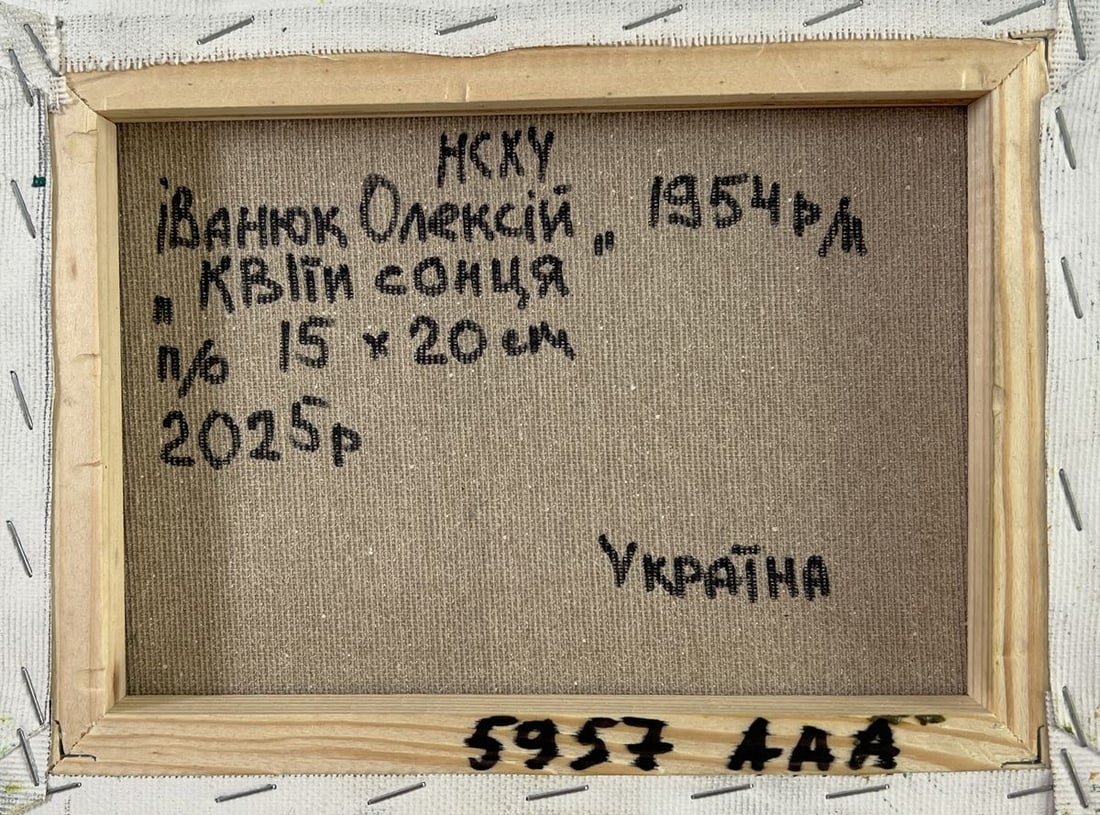 НСХУ
Іванюк Олексій 1954 р/н
„Квіти сонця"
п/о 15 x 20 см
2025р
Україна
5957 ААА